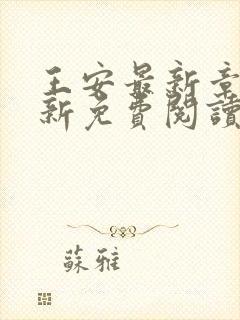 王安最新章
新免費閱讀
蘇雅